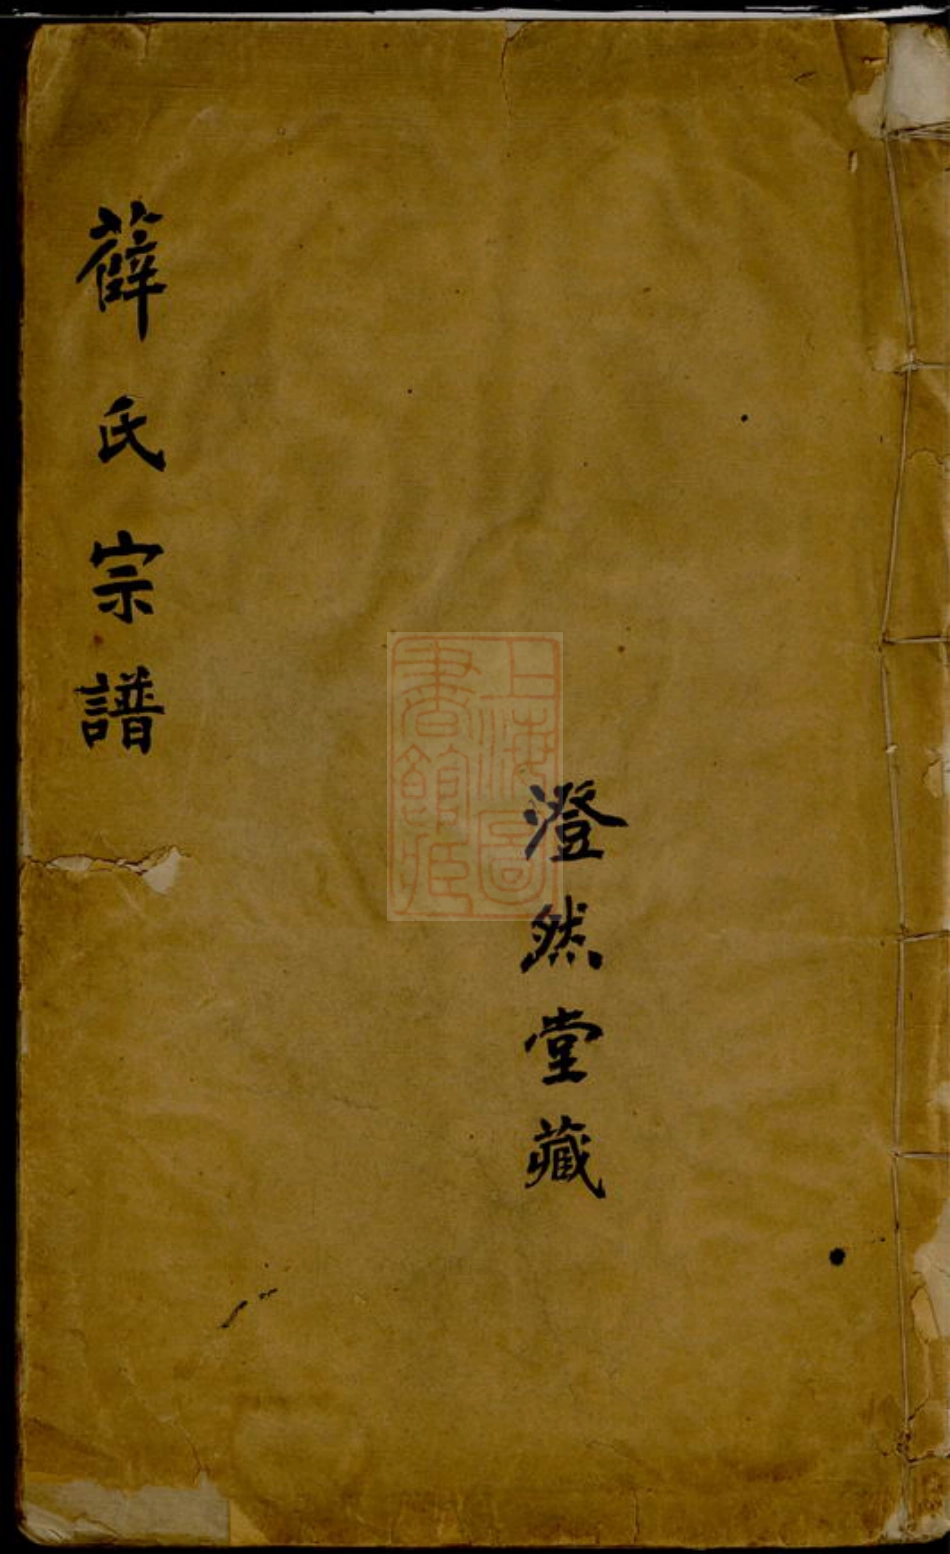 澄然堂藏
薛氏宗譜
上海圖書館藏